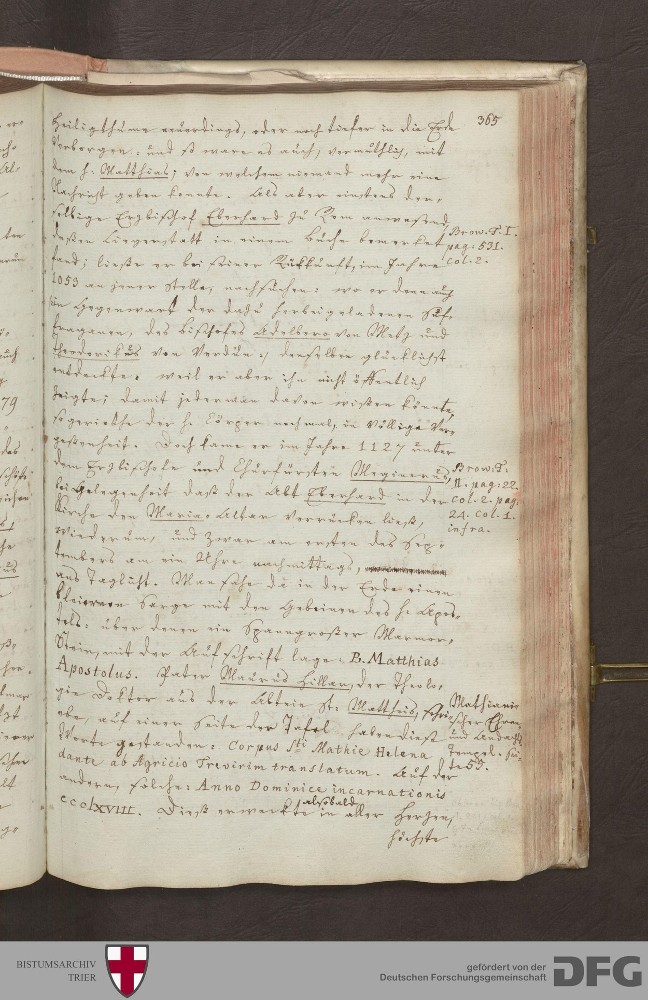 365
Heiligthume neuerdings, oder noch tiefer in die Erde
verborgen: und so ware es auch, vermuthlich, mit
dem h. Matthias; von welchem niemand mehr eine
Nachricht geben konnte. Als aber einstens der-
selbige Erzbischof Eberhard zu Rom anwesend,
deßen Liegerstatt in einem Buche bemerket
fand; ließe er bei seiner Rükkunft, im Jahre
1053 an jener Stelle, nachsuchen: wo er denn auch
in Gegenwart der dazu herbeigeladenen Suf-
fraganen, des Bischofes Adelbero von Metz und
Theoderikus von Verdün:, denselben glücklichst
entdeckte. weil er aber ihn nicht öffentlich
zeigte; damit jederman davon wißen könnte,
so geriethe der h. Körper nochmals, in völlige Ver-
geßenheit. Doch kame er im Jahre 1127 unter
dem Erzbischofe und Churfürsten Meginerus,
bei Gelegenheit daß der Abt Eberhard in der
Kirche den Maria-Altar verrücken ließ,
wiederum, und zwar am ersten des Sep-
tembers um ein Uhre nachmittags,
ans Taglicht. Man sahe da in der Erde einen
bleiernen Sarge mit den Gebeinen des h. Apos-
tels: über denen ein Spanngroßer Marmor-
Stein, mit der Aufschrift lage: B. Matthias
Apostolus. Pater Maurus Hillar, der Theolo-
gie Doktor aus der Abtein St: Mattheis, schrie
ebe, auf einer Seite der Tafel haben dieß
Worte gestanden: Corpus Sti Mathie Helena
dante ab Agricio Trevirim translatum. Auf der
andern, solche: Anno Dominice incarnationis
cccLXVIII. Dieß erweckte alsbald in aller Herzen,
höchste
Brow. T. I.
pag: 531.
col. 2.
Brow: T.
II. pag: 22.
col. 2. pag:
24. col. 1.
infra.
Mathiani-
scher Ehren
und Andachts
Tempel.
de 53.
79
BISTUMSARCHIV
TRIER
gefördert von der
Deutschen Forschungsgemeinschaft
DFG